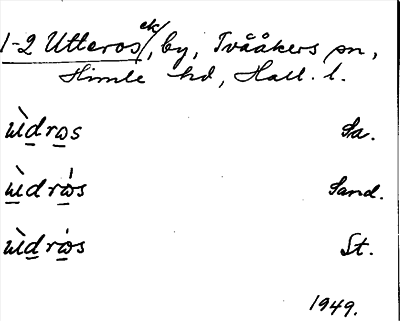 1-2 Utteros ek/, by, Tvååkers sn,
Himle hd, Hall. l.
ẁdros Sa.
ẁdrós Sand.
ẁdrós St.
1949.